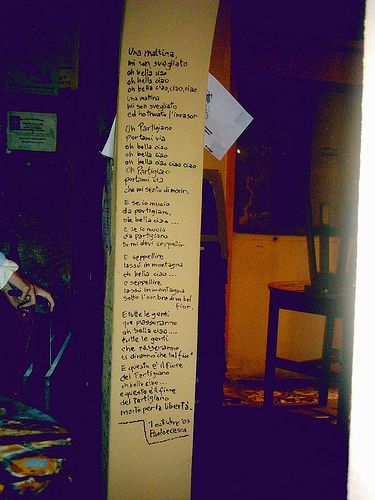 Una mattina,
mi son svegliato
oh bella ciao
oh bella ciao
oh bella ciao, ciao, ciao
una mattina
mi son svegliato
ed ho trovato l'invasor
Oh Partigiano
portami via
oh bella ciao
oh bella ciao
oh bella ciao ciao ciao
oh Partigiano
portami via
che mi sento di morir.
E se io muoio
da partigiano,
oh bella ciao ...
e se io muoio
da partigiano
tu mi devi seppellir
E seppellire
lassù in montagna
oh bella ciao ...
e seppellire
lassù in montagna
sotto l'ombra di un bel
fior.
E tutte le genti
che passeranno
oh bella ciao ...
tutte le genti
che passeranno
ti diranno "che bel fior"
E questo è il fiore
del Partigiano
oh bella ciao ...
e questo è il fiore
del Partigiano
morto per la libertà.
1 ottobre '03